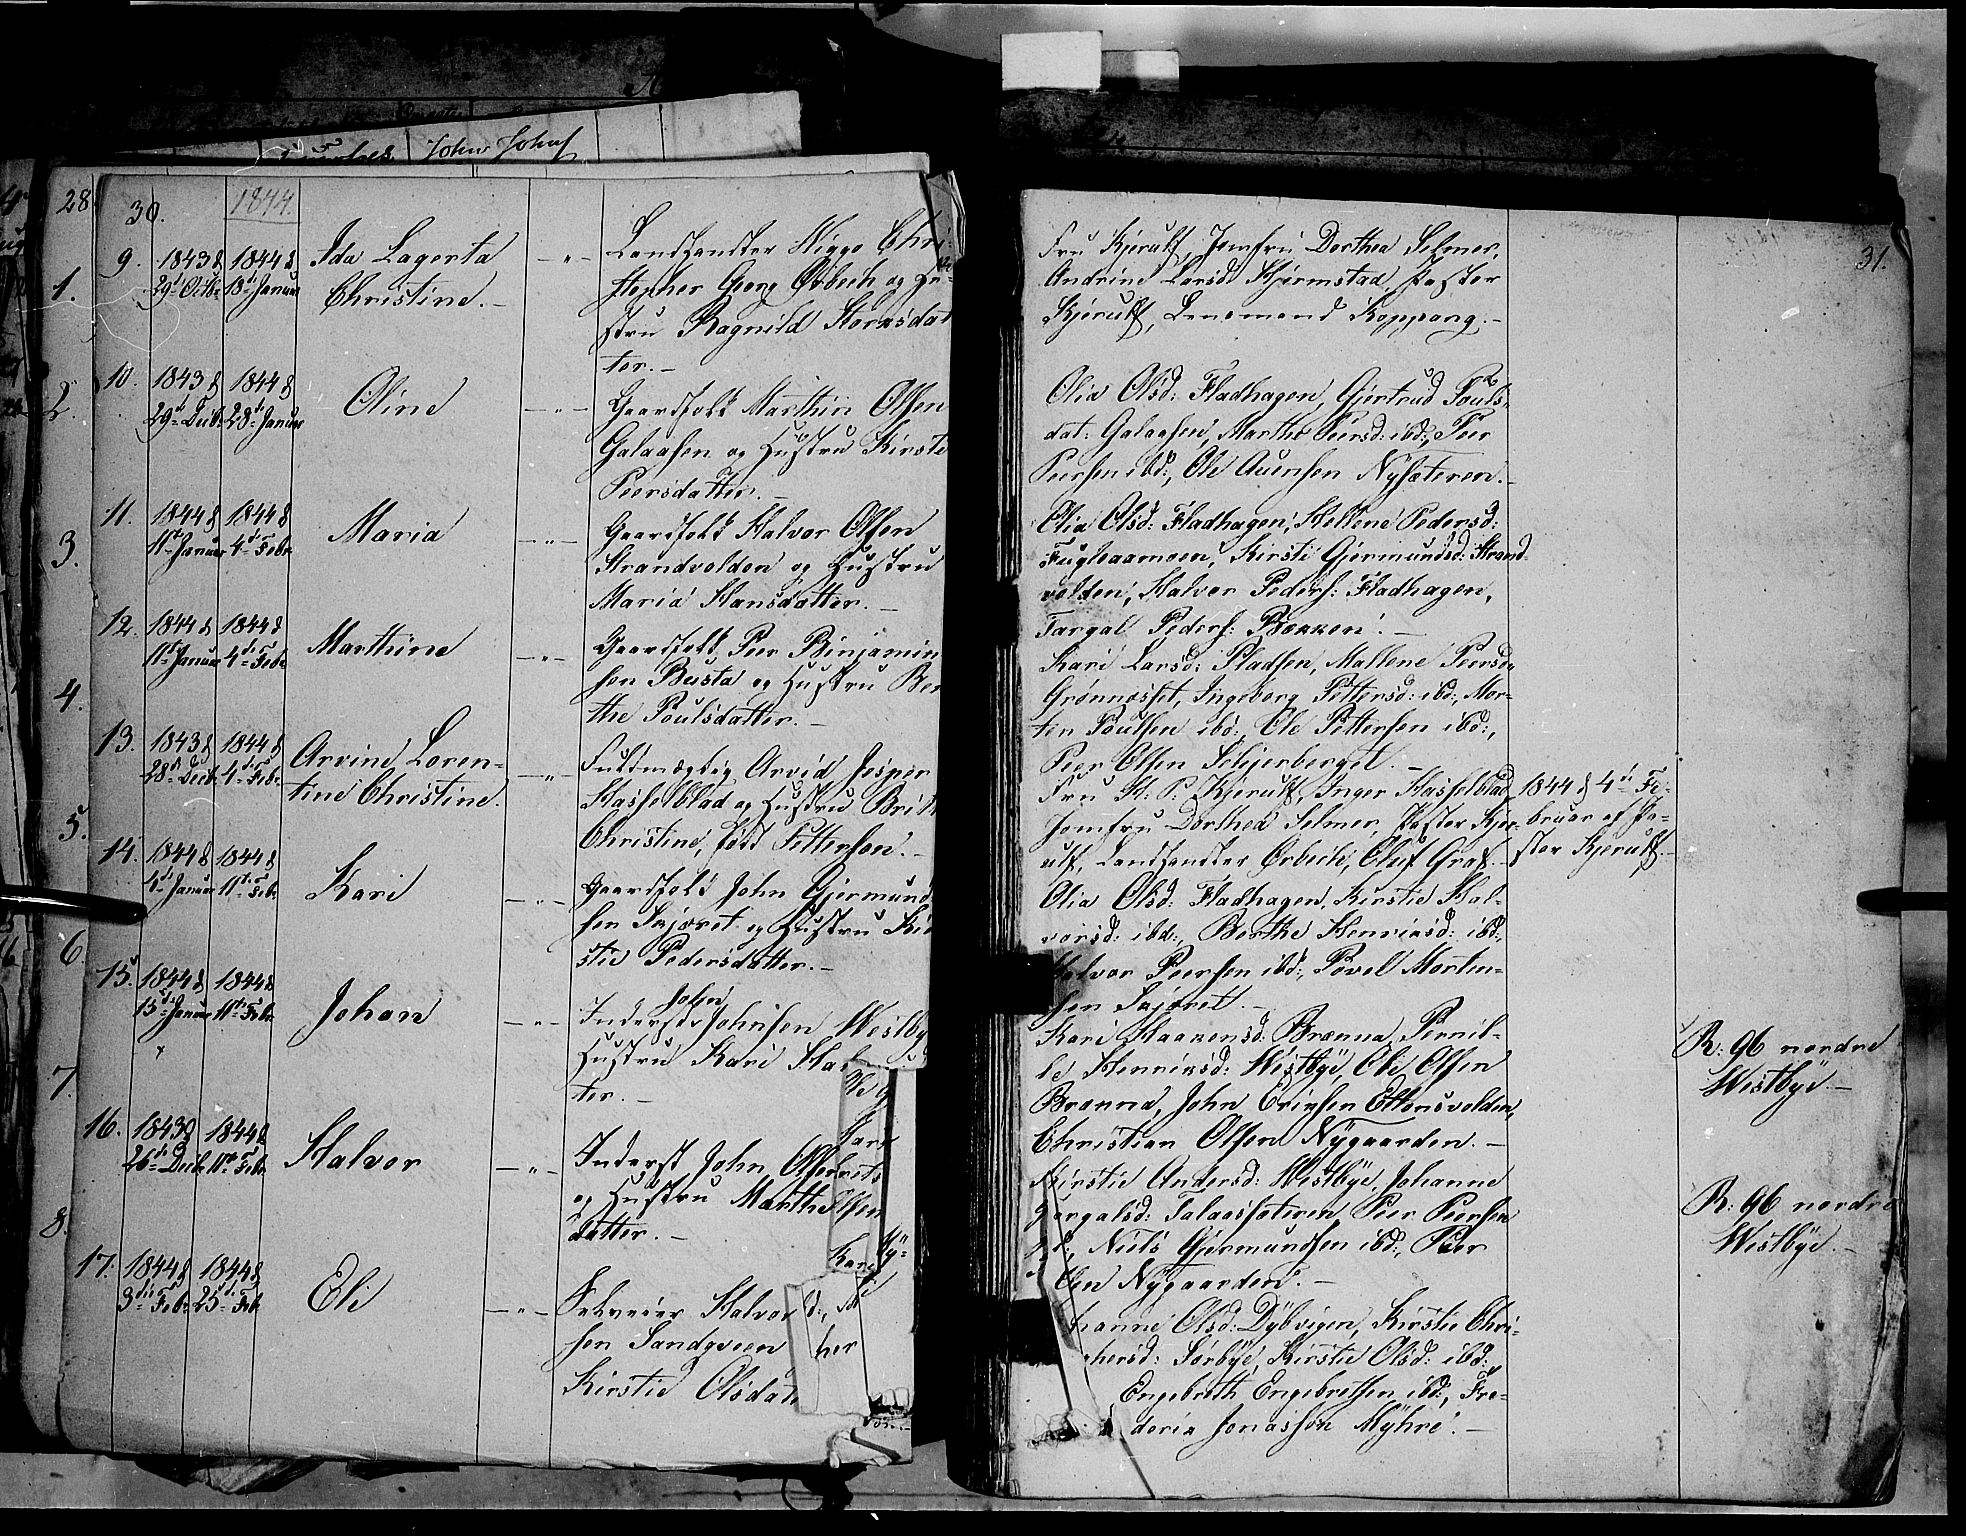 John Johns
28
30.
1844.
9. 1843 d 29d Octbr 1844 d 18d Januar Ida Lagerta Christine. — " — Landhandler Viggo Chri
stopher Georg Ørbech og Hu-
stru Ragnild Størksdat
ter. —
10. 1843 d 29d Decb. 1844 d 28d Januar Oline — " — Gaardfolk Marthin Olsen
Galaasen og Hustru Kirsti
Peersdatter. —
11. 1844 d 11d Januar 1844 d 4de Febr. Maria — " — Gaardfolk Halvor Olsen
Strandvolden og Hustru
Maria Hansdatter. —
12. 1844 d 11d Januar 1844 d 4de Febr. Marthine — " — Gaardfolk Peer Binjamin
sen Busta og Hustru Ber
the Poulsdatter. —
13. 1843 d 28d Decb. 1844 d 4de Febr. Arvine Loren-
tine Christine. — " — Fuldmægtig Arvid Jesper
Hasselblad og Hustru Brit
Christine, født Pettersen. —
14. 1844 d Januar 1844 d 11te Febr. Kari — " — Gaardfolk John Gjermund
sen Skjæret og Hustru Kir
stie Pedersdatter. —
15. 1844 d 15d Januar 1844 d 11te Febr. Johan — " — Inderst John Johnsen Westby
Hustru Kari Ha
ter. —
16. 1843 d 26d Decb. 1844 d 11te Febr. Halvor — " — Inderst John Olsen
og Hustru Marthe
datter. —
17. 1844 d 3die Febr. 1844 d 25d Feb. Eli — " — Selveier Halvor
sen Sandgveen
Kirstie Olsdat
1.
2.
3.
4.
5.
6.
7.
8.
Kari
her
31.
Fru Kjerulf, Jomfru Dorthea Selmer,
Andrine Larsd. Hjermstad, Pastor
Kjerulf, Lensmand Koppang. —
Olia Olsd: Fladhagen, Gjertrud Pouls-
dat: Galaasen, Marthe Peersd: ibd:, Peer
Peersen ibd:, Ole Auensen Nysæteren. —
Olia Olsd: Fladhagen, Hellene Pedersd:
Fugleaamoen, Kirsti Gjermundsd: Strand-
volden, Halvor Peders: Fladhagen,
Targal Peders: Bekken. —
Kari Larsd: Pladsen, Mallene Peersd:
Grønnæsset, Ingeborg Pettersd: ibd:, Mor-
ten Poulsen ibd:, Ole Pettersen ibd:,
Peer Olsen Schjerberget. —
Fru H: P: Kjerulf, Inger Hasselblad,
Jomfru Dorthea Selmer, Pastor Kjer-
ulf, Landhandler Ørbech, Oluf Graf. —
1844 d 4de Fe-
bruar af Pa-
stor Kjerulf. —
Olia Olsd: Fladhagen, Kirstie Hal-
vorsd: ibd:, Berthe Henriksd: ibd:,
Halvor Peersen ibd:, Povel Morten-
sen Skjæret. —
Kari Haakensd: Brænna, Pernil-
le Henriksd: Westbye, Ole Olsen
Brænna, John Eriksen Ellensvolden,
Christian Olsen Nygaarden. —
R: 96 nordre
Westbye —
Kirstie Andersd: Westbye, Johanne
Targalsd: Galaassæteren, Peer Peersen
Niels Gjermundsen ibd:, Peer
Nygaarden. —
R: 96 nordre
Westbye. —
hanne Olsd: Dybvigen, Kirstie Chri-
phersd: Sørbye, Kirstie Olsd: ibd:,
Engebreth Engebretsen ibd:, Fre-
derik Jonassen Myhre. —